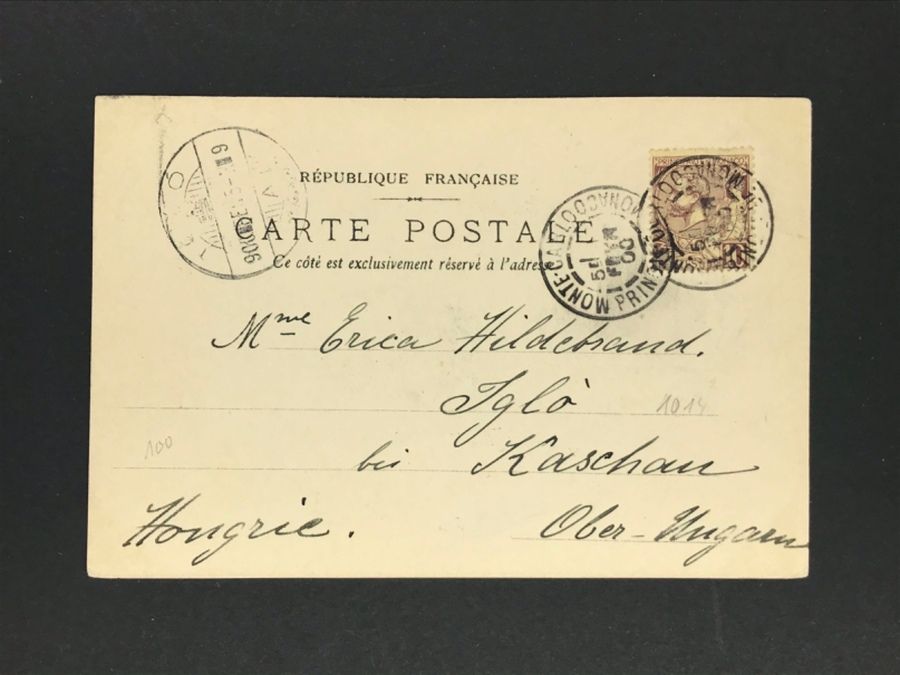 RÉPUBLIQUE FRANÇAISE
CARTE POSTALE
Ce côté est exclusivement réservé à l'adresse
MONTE-CARLO
PRINCIPAUTÉ DE MONACO
Mme Erica Hildebrand.
Iglò
1014
100
bei Kaschau
Hongrie. Ober-Ungarn